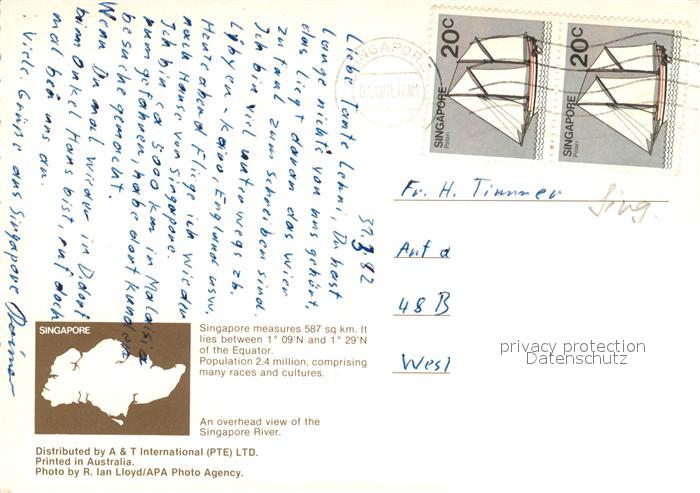 31.3.82
Liebe Tante Lehni, Du hast
Lange nichts von uns gehört,
das liegt daran das wir
zu faul zum schreiben sind.
Ich bin viel unterwegs zb.
Libyen - Kairo, England usw.
Heute abend Fliege ich wieder
nach Hause von Singapore.
Ich bin ca 5000 km in Malaisia
rumgefahren, habe dort kunden
besuche gemacht.
Wenn Du mal wieder in Ddorf
beim onkel Hans bist, ruf doch
mal bei uns an.
Viele Grüße aus Singapore
SINGAPORE
20c
SINGAPORE
20c
SINGAPORE
Fr. H. Timmer
Sing.
Auf d
48 B
Wesl
privacy protection
Datenschutz
SINGAPORE
Singapore measures 587 sq km. It
lies between 1° 09'N and 1° 29'N
of the Equator.
Population 2.4 million, comprising
many races and cultures.
An overhead view of the
Singapore River.
Distributed by A & T International (PTE) LTD.
Printed in Australia.
Photo by R. Ian Lloyd/APA Photo Agency.